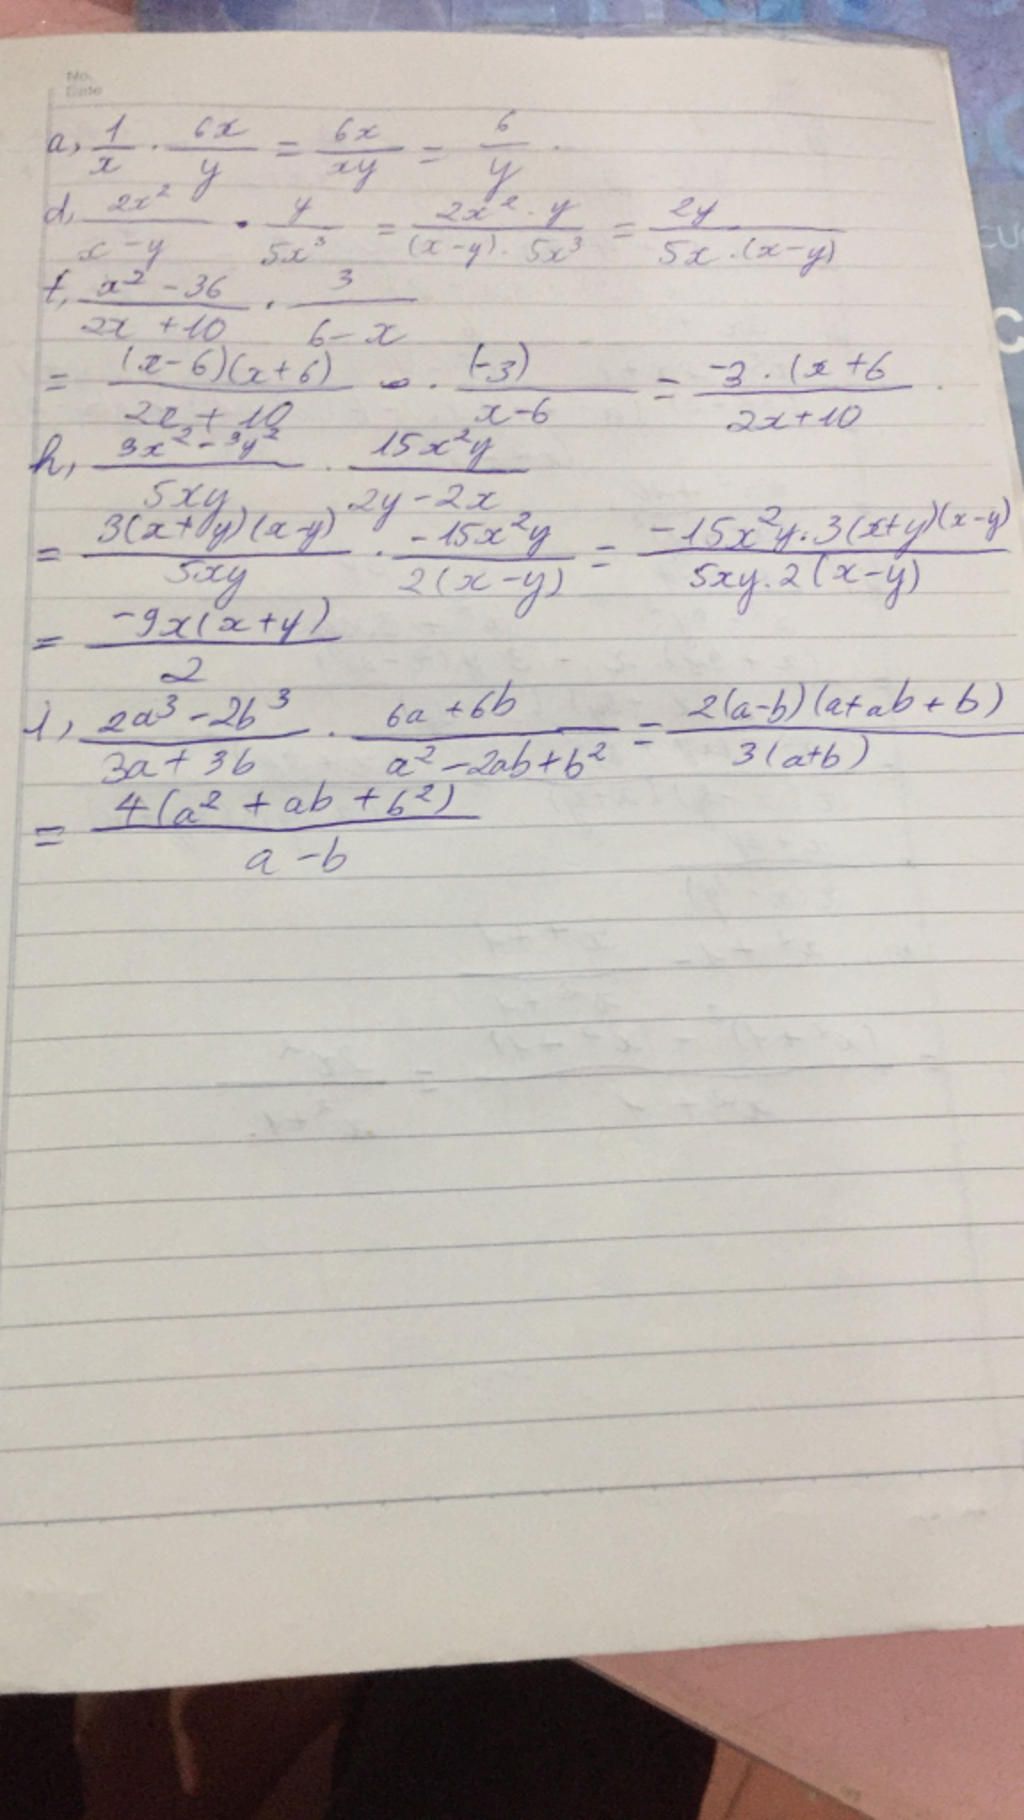 No.
Date
a, 1/x · 6x/y = 6x/xy = 6/y .
d, 2x²/x-y · y/5x³ = 2x² · y/(x-y) · 5x³ = 2y/5x · (x-y)
f, x² - 36/2x + 10 · 3/6 - x
= (x-6)(x+6)/2x + 10 · (-3)/x-6 = -3 · (x+6/2x+10 .
h, 3x² - 3y²/5xy · 15x²y/2y - 2x
= 3(x+y)(x-y)/5xy · -15x²y/2(x-y) = -15x²y · 3(x+y)(x-y)/5xy . 2(x-y)
= -9x(x+y)/2
i, 2a³ - 2b³/3a + 3b · 6a + 6b/a² - 2ab + b² = 2(a-b)(a+ab+b)/3(a+b)
= 4(a² + ab + b²)/a - b